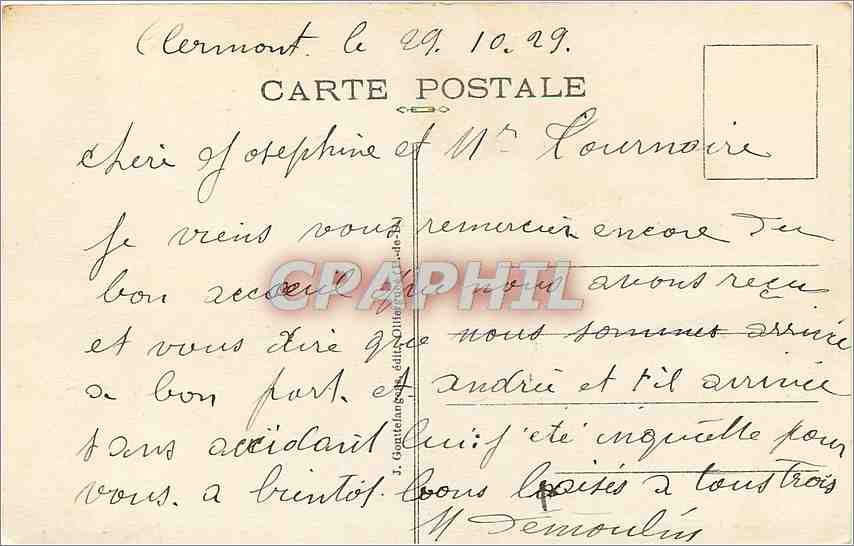 Clermont. le 29. 10. 29.
CARTE POSTALE
chère Josephine et Mr Tournaire
Je viens vous remercier encore du
bon accœuil que nous avons reçu
et vous dire que nous sommes arrivée
a bon port. et andrée et t'il arrivée
sans accidant lui: j'eté inquiette pour
vous. a bientot. bons baisés a tous trois
M Demoulin
J. Gouttelangue, édit., Olliergues (P.-de-D.)
CPAPHIL